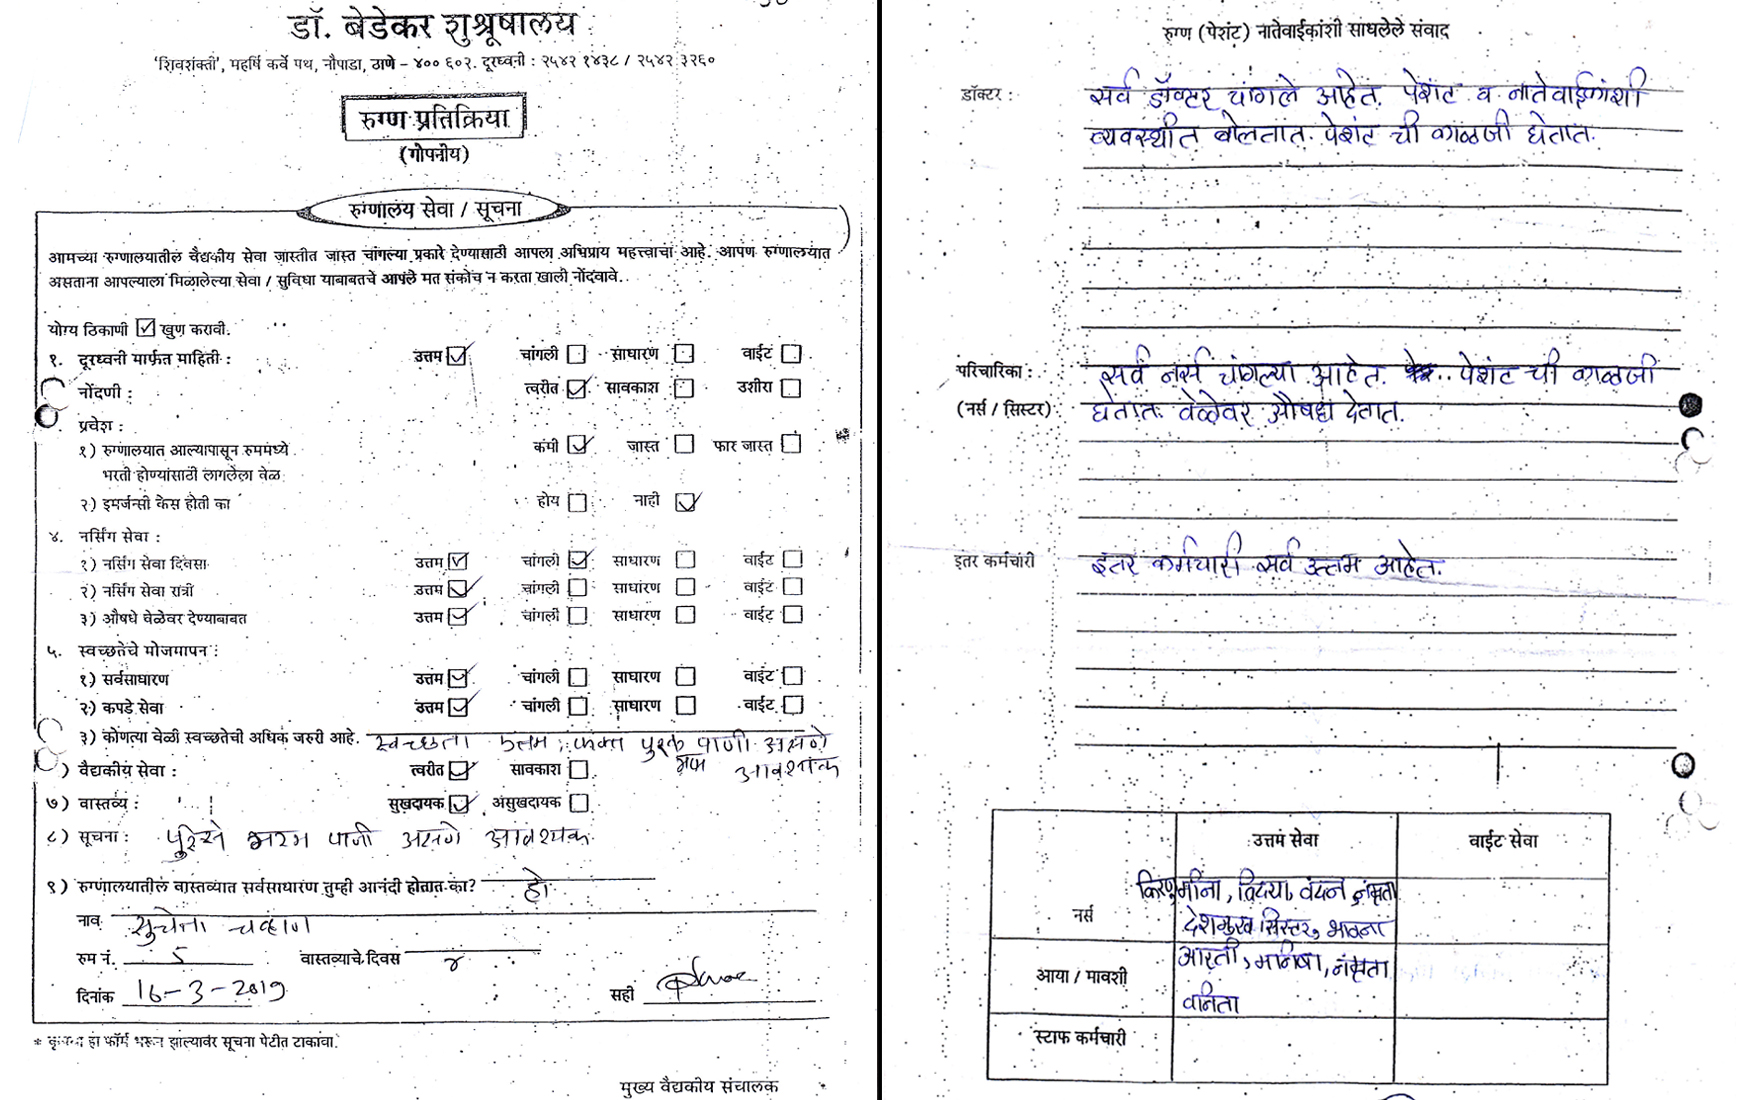 डॉ. बेडेकर शुश्रूषालय
'शिवशक्ती', महर्षि कर्वे पथ, नौपाडा, ठाणे - ४०० ६०२. दूरध्वनी : २५४२ १४३८ / २५४२ ३२६०
रुग्ण प्रतिक्रिया
(गोपनीय)
रुग्णालय सेवा / सूचना
आमच्या रुग्णालयातील वैद्यकीय सेवा जास्तीत जास्त चांगल्या प्रकारे देण्यासाठी आपला अभिप्राय महत्त्वाचा आहे. आपण रुग्णालयात
असताना आपल्याला मिळालेल्या सेवा / सुविधा याबाबतचे आपले मत संकोच न करता खाली नोंदवावे.
योग्य ठिकाणी ☑ खुण करावी.
१. दूरध्वनी मार्फत माहिती : उत्तम ☑ चांगली ☐ साधारण ☐ वाईट ☐
नोंदणी : त्वरीत ☑ सावकाश ☐ उशीरा ☐
प्रवेश :
१) रुग्णालयात आल्यापासून रुममध्ये कमी ☑ जास्त ☐ फार जास्त ☐
भरती होण्यासाठी लागलेला वेळ
२) इमर्जन्सी केस होती का होय ☐ नाही ☑
४. नर्सिंग सेवा :
१) नर्सिंग सेवा दिवसा उत्तम ☑ चांगली ☑ साधारण ☐ वाईट ☐
२) नर्सिंग सेवा रात्री उत्तम ☑ चांगली ☐ साधारण ☐ वाईट ☐
३) औषधे वेळेवर देण्याबाबत उत्तम ☑ चांगली ☐ साधारण ☐ वाईट ☐
५. स्वच्छतेचे मोजमापन :
१) सर्वसाधारण उत्तम ☑ चांगली ☐ साधारण ☐ वाईट ☐
२) कपडे सेवा उत्तम ☑ चांगली ☐ साधारण ☐ वाईट ☐
३) कोणत्या वेळी स्वच्छतेची अधिक जरुरी आहे. स्वच्छता उत्तम, फक्त पाणी असणे
गरम आवश्यक
) वैद्यकीय सेवा : त्वरीत ☑ सावकाश ☐
७) वास्तव्य : सुखदायक ☑ असुखदायक ☐
८) सूचना : पुरेसे गरम पाणी असणे आवश्यक
९) रुग्णालयातील वास्तव्यात सर्वसाधारण तुम्ही आनंदी होतात का? हो
नाव सुचेता चव्हाण
रुम नं. 5 वास्तव्याचे दिवस ४
दिनांक 16-3-2019 सही
* कृपया हा फॉर्म भरून झाल्यावर सूचना पेटीत टाकावा.
मुख्य वैद्यकीय संचालक
रुग्ण (पेशंट) नातेवाईकांशी साधलेले संवाद
डॉक्टर : सर्व डॉक्टर चांगले आहेत. पेशंट व नातेवाईकांशी
व्यवस्थीत बोलतात. पेशंट ची काळजी घेतात.
परिचारिका : सर्व नर्स चांगल्या आहेत. पेशंट ची काळजी
(नर्स / सिस्टर) घेतात. वेळेवर औषध देतात.
इतर कर्मचारी इतर कर्मचारी सर्व उत्तम आहेत.
उत्तम सेवा वाईट सेवा
किरण, मीना, विद्या, वंदना, नम्रता
नर्स देशमुख सिस्टर, भावना
आरती, मनिषा, नम्रता
आया / मावशी
वनिता
स्टाफ कर्मचारी